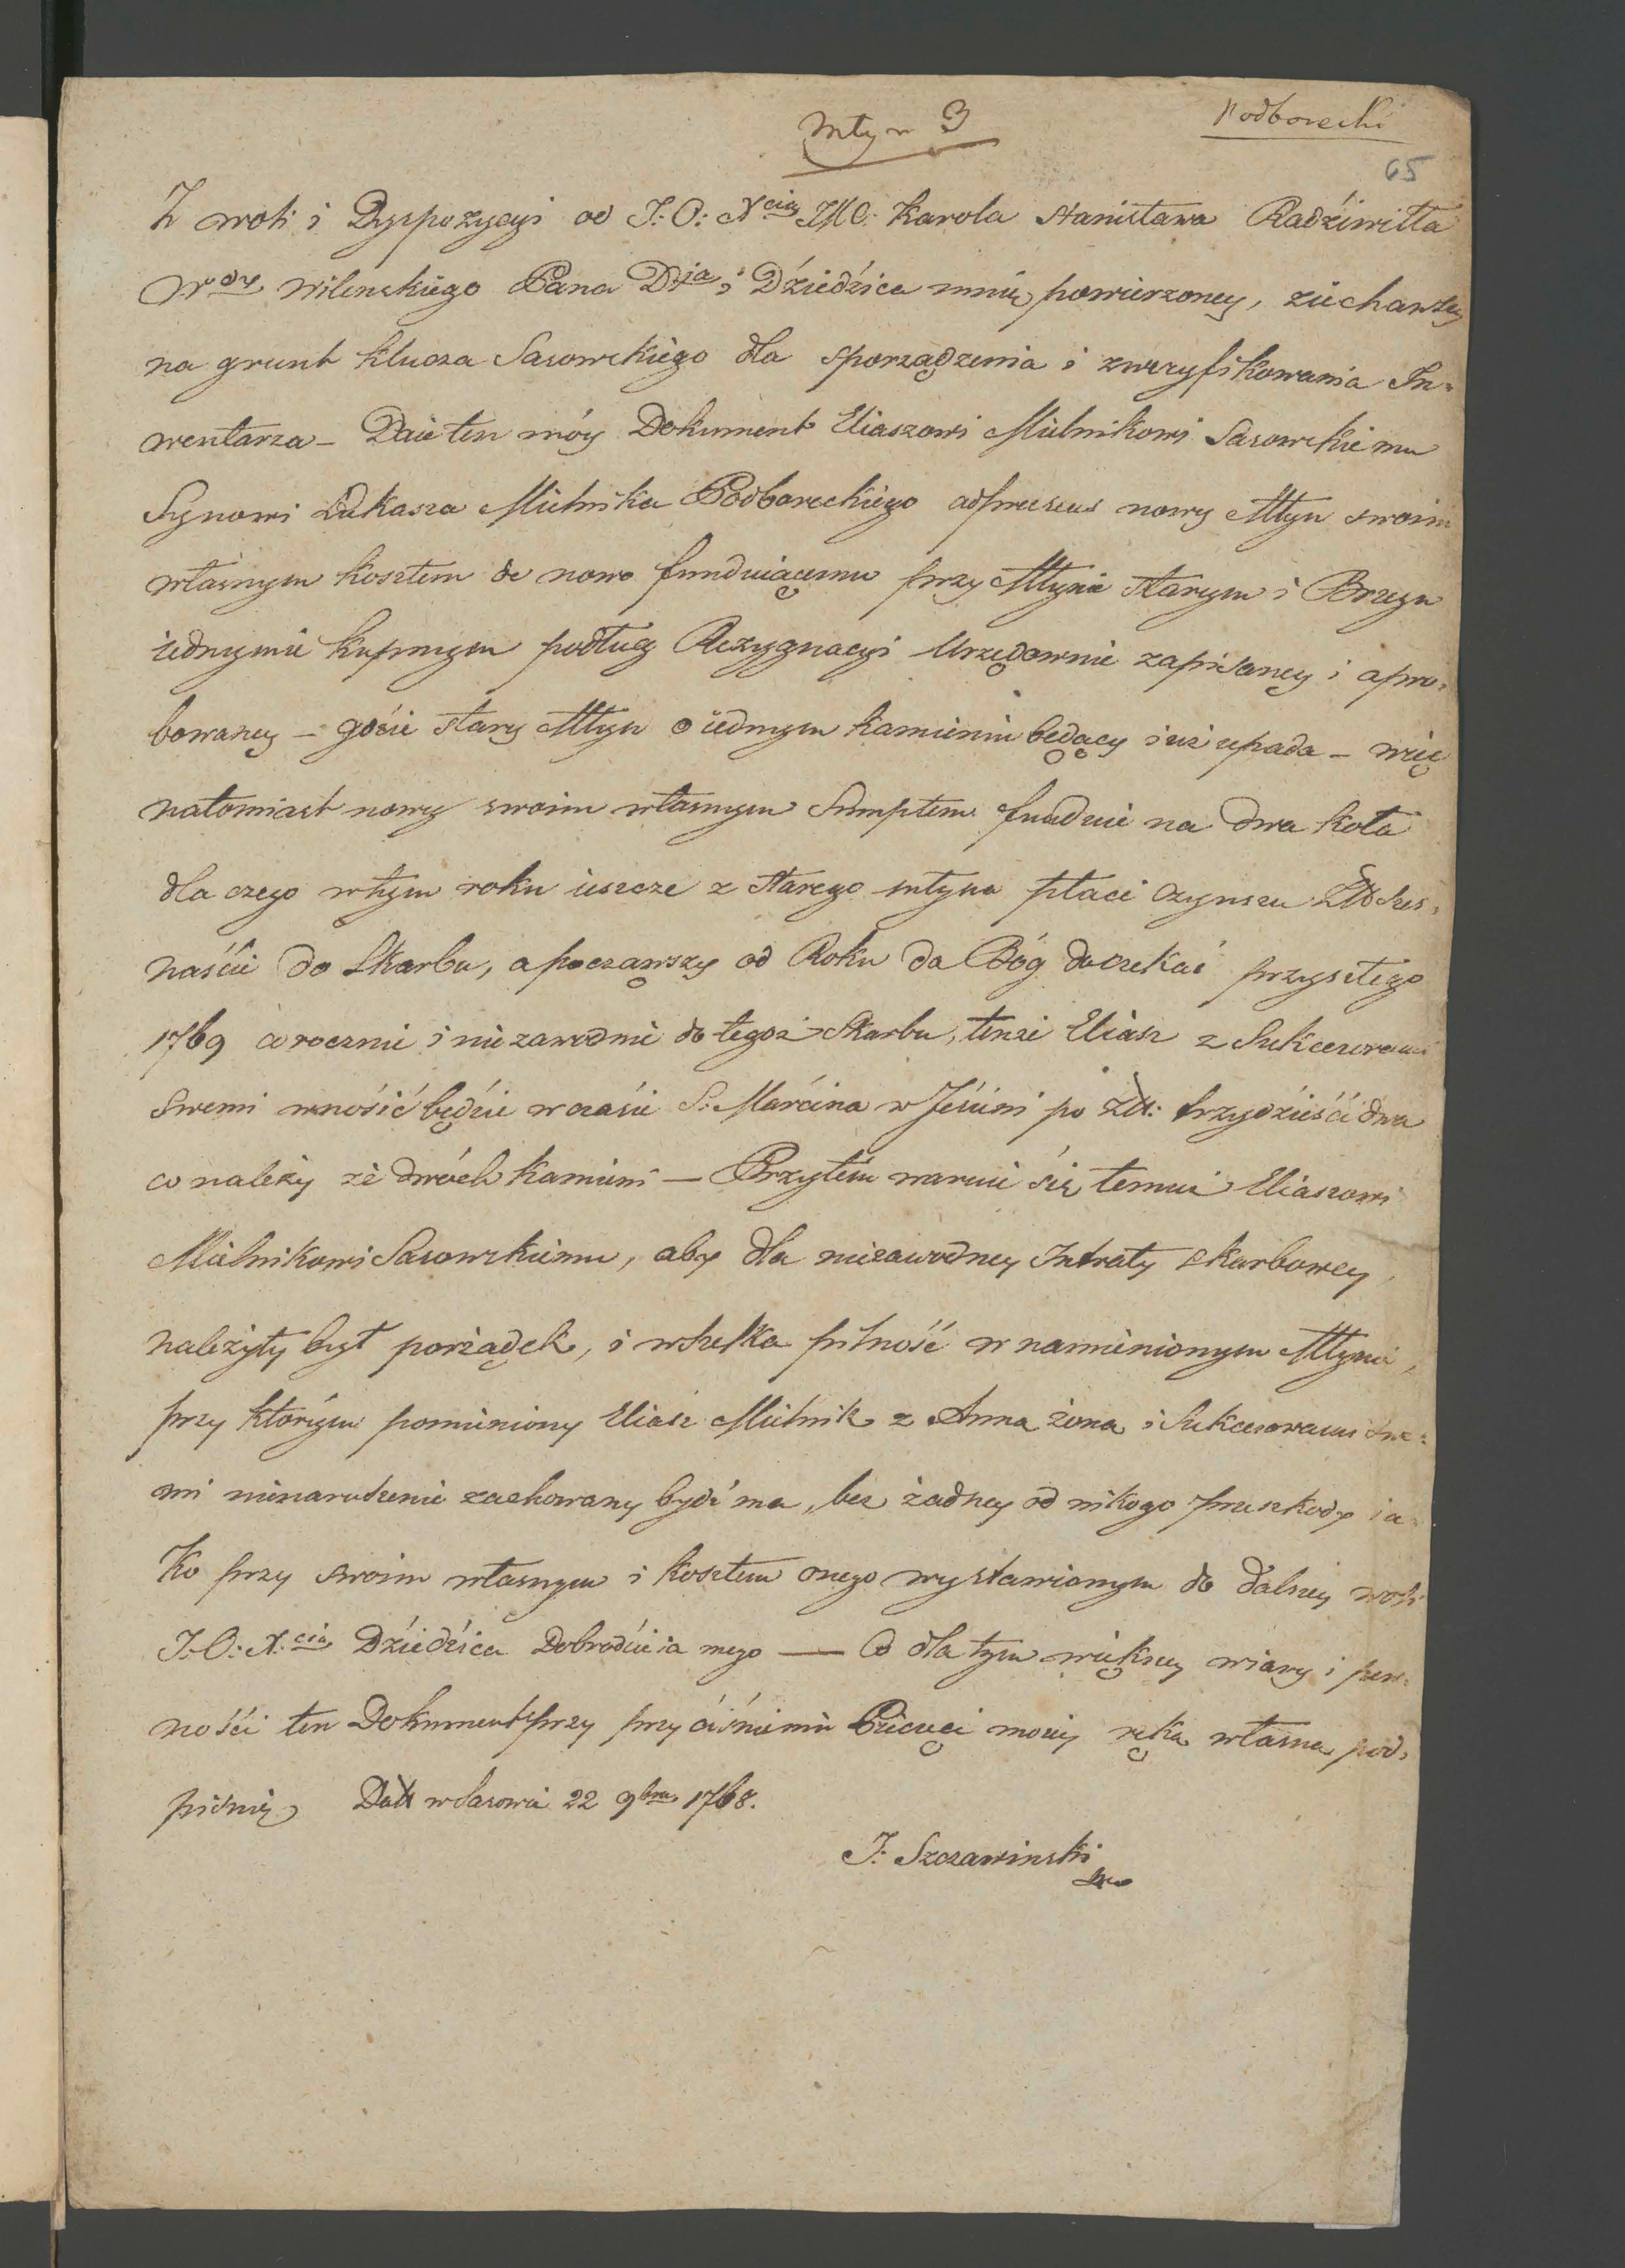 Młyn 3
Podborecki
65
Z woli i Dyspozycyi od J: O: Xcia JMC: Karola Stanisława Radźiwiłła
Wdy Wilenskiego Pana Dja i Dźiedźica mnie powierzoney, ziechawszy
na grunt klucza Sasowskiego dla sporządzenia i zweryfikowania In=
wentarza – Daie ten móy Dokument Eliaszowi Mielnikowi Sasowskiemu
Synowi Łukasza Mielnika Podboreckiego adpraesens nowy Młyn swoim
własnym kosztem de novo funduiącemu przy Młynie starym i Brzegu
iednymie kupnym podług Rezygnacyi Urzędownie zapisaney i apro=
bowaney – gdźie stary Młyn o iednym kamieniu będący iuż upada – więc
natomiast nowy swoim własnym Sumptem funduie na dwa koła
dla czego w tym roku ieszcze z starego młyna płaci czynszu Złł szes=
naśćie do Skarbu, a począwszy od Roku da Bóg doczekać przyszłego
1769 corocznie i niezawodnie do tegoż Skarbu, tenże Eliasz z Sukcesorami
Swemi wnośić będźie w czaśie S: Marćina w Jeśieni po Złł: trzydźieśći dwa
co należy ze dwóch kamieni — Przytém waruie śię temuż Eliaszowi
Mielnikowi Sasowskiemu, aby dla niezawodney Intraty skarbowey,
należyty był porządek, i wszelka pilność w namienionym Młynie,
przy którym pomieniony Eliasz Mielnik z Anną żoną i Sukcesorami swe=
mi nienaruszenie zachowany bydź ma, bez żadney od nikogo przeszkody ia=
ko przy swoim własnym i kosztem onego wystawionym do dalszey woli
J: O: X:cia Dźiedźica Dobrodźieia mego — Co dla tym większey wiary i pew=
nośći ten Dokument przy przyćiśnieniu Pieczęći moiey ręką własną pod=
pisuię Datt w Sasowie 22 9bra 1768.
J: Szczawinski